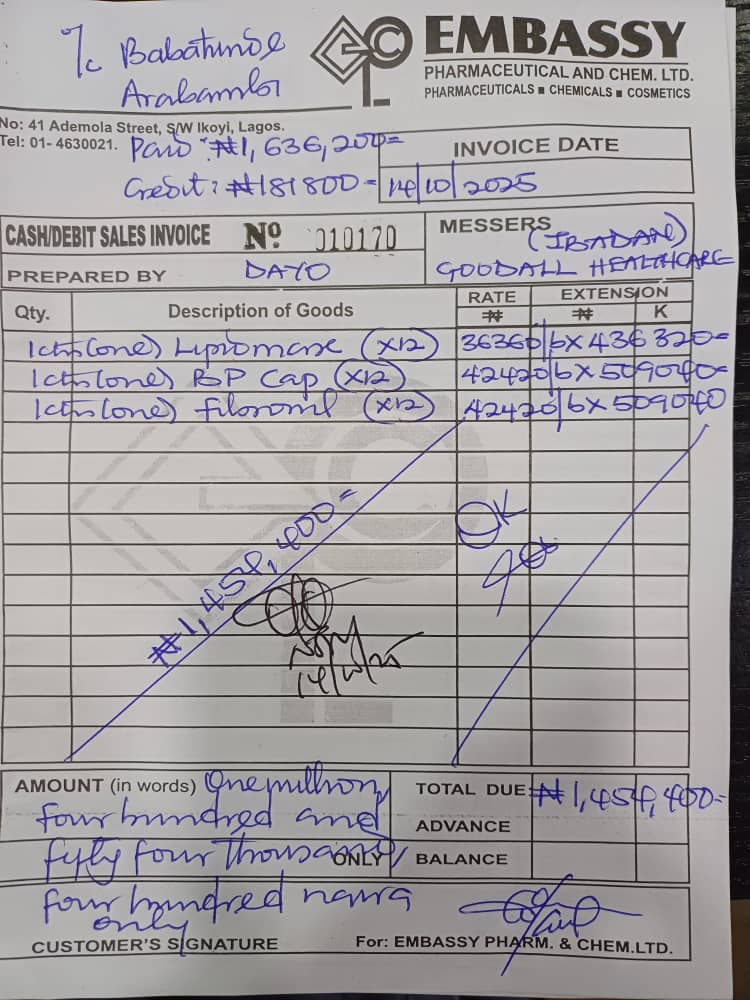 I/c Babatunde
Arabambi
EMBASSY
PHARMACEUTICAL AND CHEM. LTD.
PHARMACEUTICALS ■ CHEMICALS ■ COSMETICS
No: 41 Ademola Street, S/W Ikoyi, Lagos.
Tel: 01- 4630021.
Paid: ₦1,636,200=
Credit: ₦181800=
INVOICE DATE
14/10/2025
CASH/DEBIT SALES INVOICE No. 010170
MESSERS (IBADAN)
GOODALL HEALTHCARE
PREPARED BY DAYO
Qty. Description of Goods RATE ₦ EXTENSION ₦ K
1ctn (one) (X12) 36360/6X 436320=
1ctn (one) BP Cap (X12) 42420/6X 509040=
1ctn (one) (X12) 42420/6X 509040
₦1,454,400=
OK
14/10/25
AMOUNT (in words) One million
four hundred and
fyfty four thousand
ONLY
four hundred naira
only
TOTAL DUE ₦1,454,400=
ADVANCE
BALANCE
CUSTOMER'S SIGNATURE
For: EMBASSY PHARM. & CHEM.LTD.